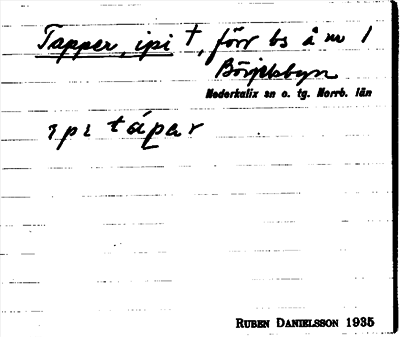 Tapper, ipi †, förr bs å nr 1
Börjelsbyn
Nederkalix sn o. tg. Norrb. län
ipi tápar
RUBEN DANIELSSON 1935